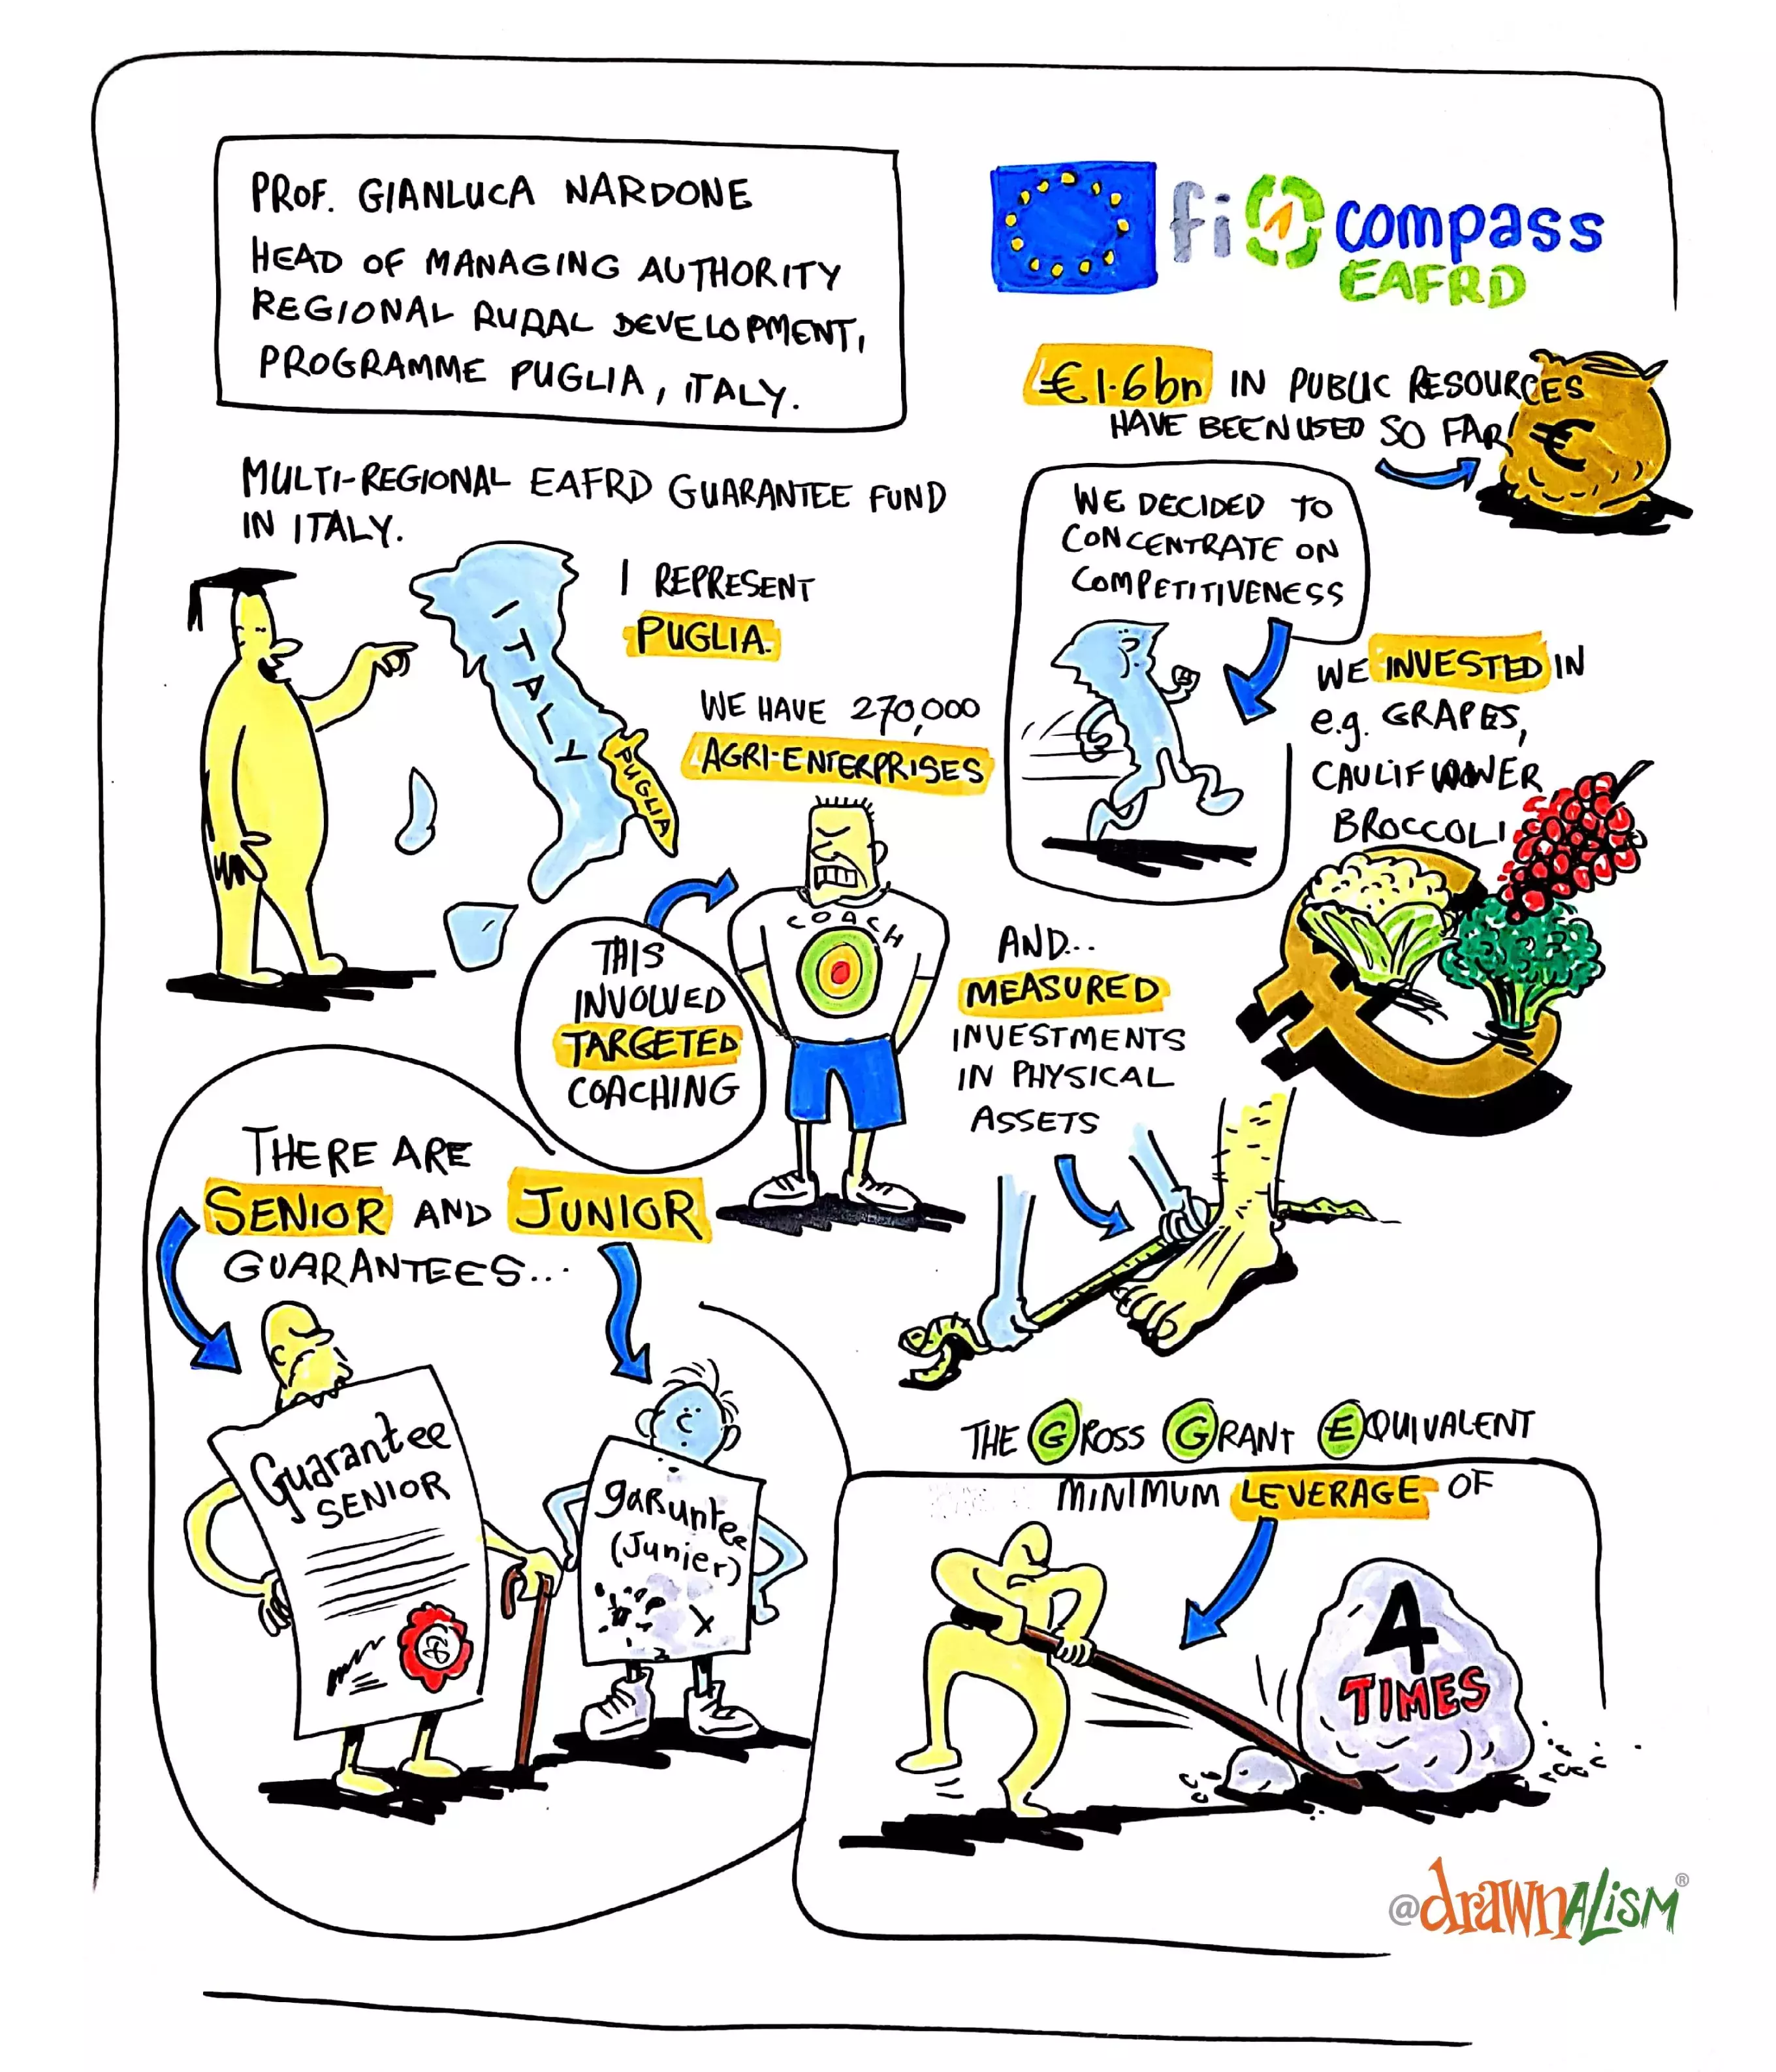 PROF. GIANLUCA NARDONE
HEAD OF MANAGING AUTHORITY
REGIONAL RURAL DEVELOPMENT,
PROGRAMME PUGLIA, ITALY.
fi compass
EAFRD
€1.6bn IN PUBLIC RESOURCES
HAVE BEEN USED SO FAR!
€
MULTI-REGIONAL EAFRD GUARANTEE FUND
IN ITALY.
I REPRESENT
PUGLIA.
ITALY
PUGLIA
WE HAVE 270,000
AGRI-ENTERPRISES
WE DECIDED TO
CONCENTRATE ON
COMPETITIVENESS
WE INVESTED IN
e.g. GRAPES,
CAULIFLOWER
BROCCOLI
THIS
INVOLVED
TARGETED
COACHING
COACH
AND...
MEASURED
INVESTMENTS
IN PHYSICAL
ASSETS
THERE ARE
SENIOR AND JUNIOR
GUARANTEES...
Guarantee
SENIOR
garuntee
(Junier)
X
THE GROSS GRANT EQUIVALENT
MINIMUM LEVERAGE OF
4
TIMES
@drawnALISM®